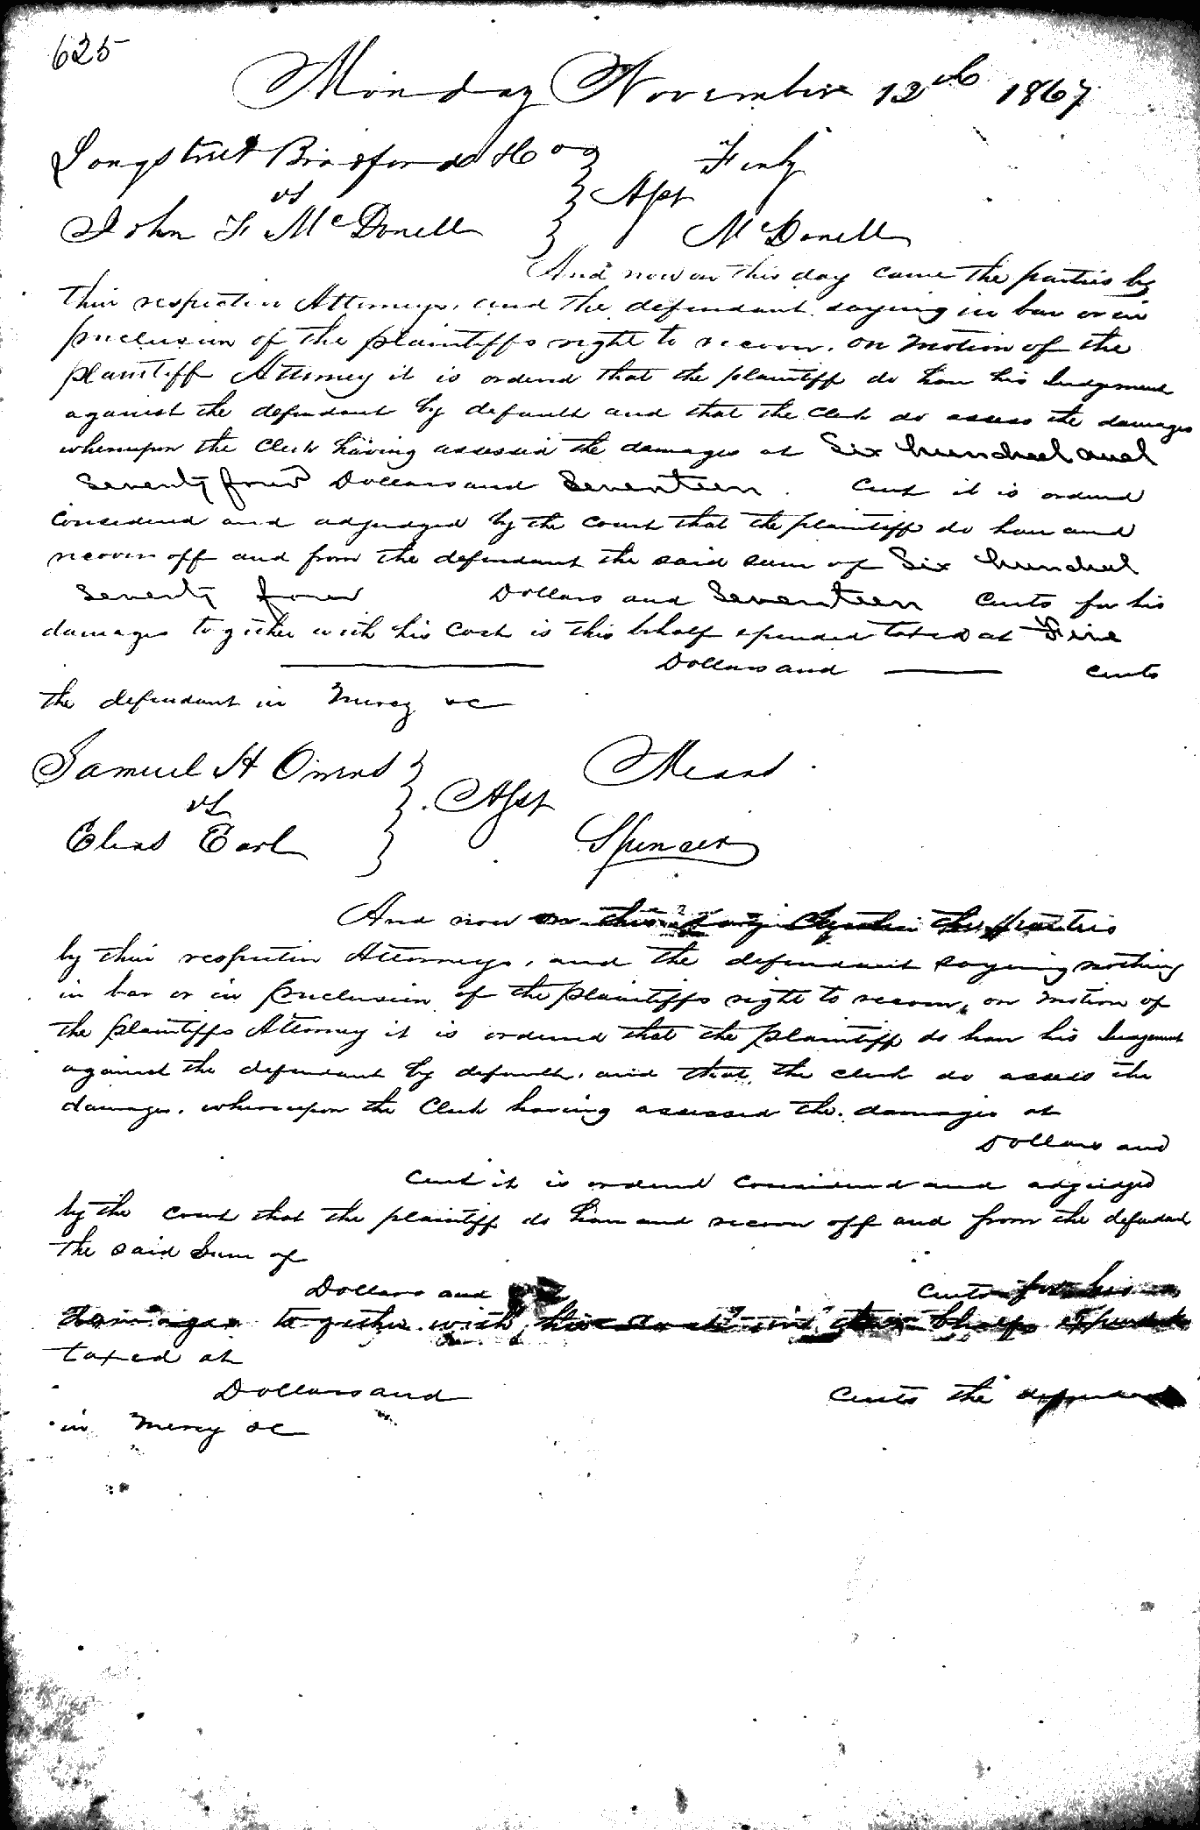 625
Monday November 12th 1867
Longstreet Bradford & Co } Finly
vs } Asst
John F McDonell } McDonell
And now on this day came the parties by
their respective Attorneys, and the defendant saying in bar or in
preclusion of the plaintiffs right to recover, on motion of the
plaintiff Attorney it is ordered that the plaintiff do have his Judgement
against the defendant by default and that the clerk do assess the damages
whereupon the Clerk having assessed the damages at Six hundred and
Seventy four Dollars and Seventeen Cent it is ordered
Considered and adjudged by the court that the plaintiff do have and
recover off and from the defendant the said sum of Six hundred
Seventy four Dollars and Seventeen Cents for his
damages together with his Cost is this behalf expended taxed at Five
Dollars and cents
the defendant in Mercy &c
Samuel H Owens } Means
vs } Asst
Elias Earl } Spencer
And now on this day the parties
by their respective Attorneys, and the defendant saying nothing
in bar or in preclusion of the plaintiffs right to recover, on motion of
the plaintiffs Attorney it is ordered that the plaintiff do have his Judgement
against the defendant by default, and that the clerk do assess the
damages, whereupon the Clerk having assessed the damages at
Dollars and
Cent it is ordered considered and adjudged
by the court that the plaintiff do have and recover off and from the defendant
the said Sum of
Dollars and cents for his
damages together with his cost in this behalf expended
taxed at
Dollars and Cents the defendant
in Mercy &c